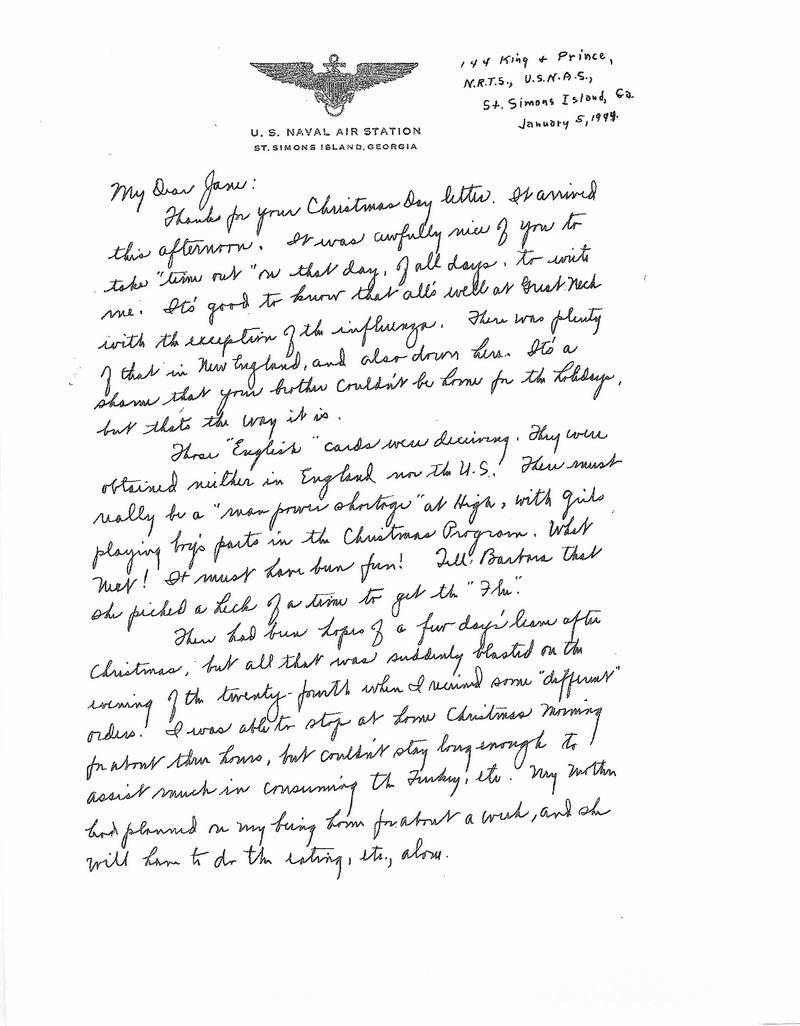 144 King + Prince,
N.R.T.S., U.S.N.A.S.,
St. Simons Island, Ga.
January 5, 1944.
U. S. NAVAL AIR STATION
ST. SIMONS ISLAND, GEORGIA
My Dear Jane:
Thanks for your Christmas Day letter. It arrived
this afternoon. It was awfully nice of you to
take "time out" on that day, of all days, to write
me. It's good to know that all's well at Great Neck
with the exception of the influenza. There was plenty
of that in New England, and also down here. It's a
shame that your brother couldn't be home for the holidays,
but that's the way it is.
Those "English" cards were deceiving. They were
obtained neither in England nor the U.S.! There must
really be a "man power shortage" at High, with girls
playing boy's parts in the Christmas Program. What
Next! It must have been fun! Tell Barbara that
she picked a heck of a time to get the "Flu".
There had been hopes of a few day's leave after
Christmas, but all that was suddenly blasted on the
evening of the twenty-fourth when I received some "different"
orders! I was able to stop at home Christmas Morning
for about three hours, but couldn't stay long enough to
assist much in consuming the Turkey, etc. My Mother
had planned on my being home for about a week, and she
will have to do the eating, etc., alone.